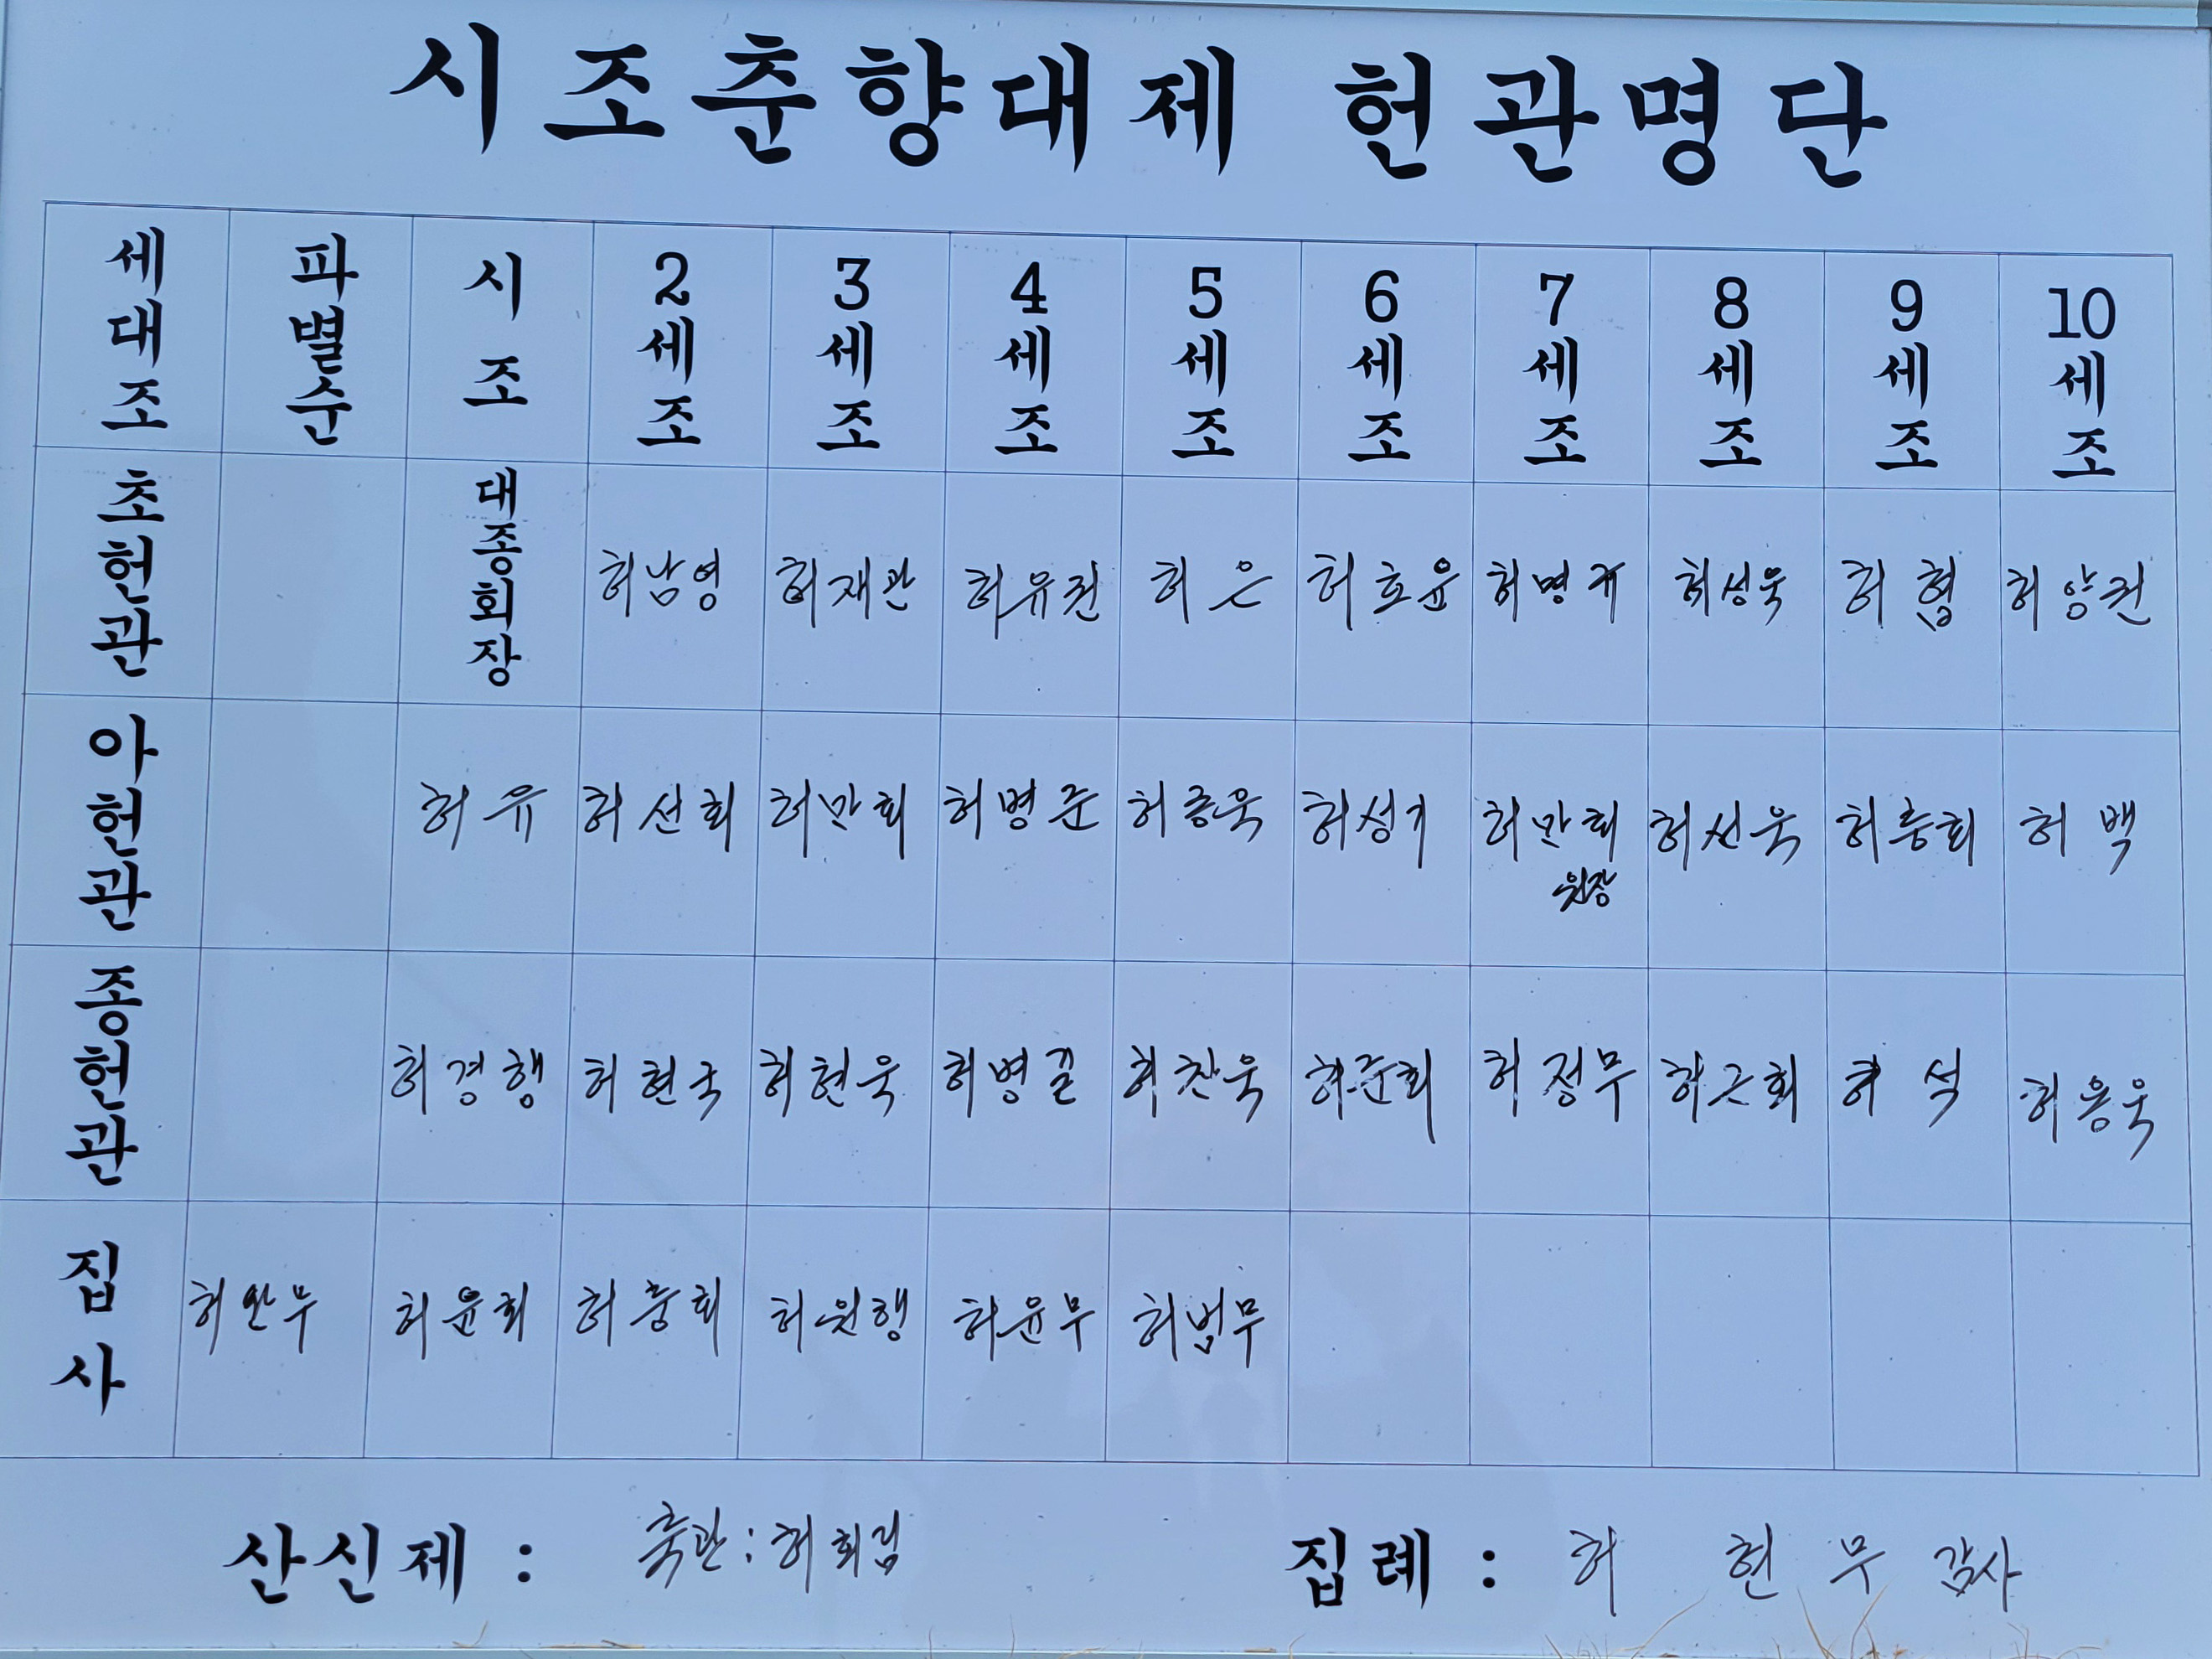 시조춘향대제 헌관명단
세대조 파별순 시조 2세조 3세조 4세조 5세조 6세조 7세조 8세조 9세조 10세조
초헌관 대종회장 허남영 허재관 허유권 허은 허효윤 허명규 허성욱 허협 허양권
아헌관 허유 허선회 허만회 허병준 허종욱 허성기 허만회 허선욱 허충회 허백
원장
종헌관 허경행 허현국 허현욱 허병길 허찬욱 허준회 허정무 허근회 허석 허용욱
집사 허완무 허윤회 허홍회 허원행 허윤무 허범무
산신제 : 축관:허회림 집례 : 허현무 감사